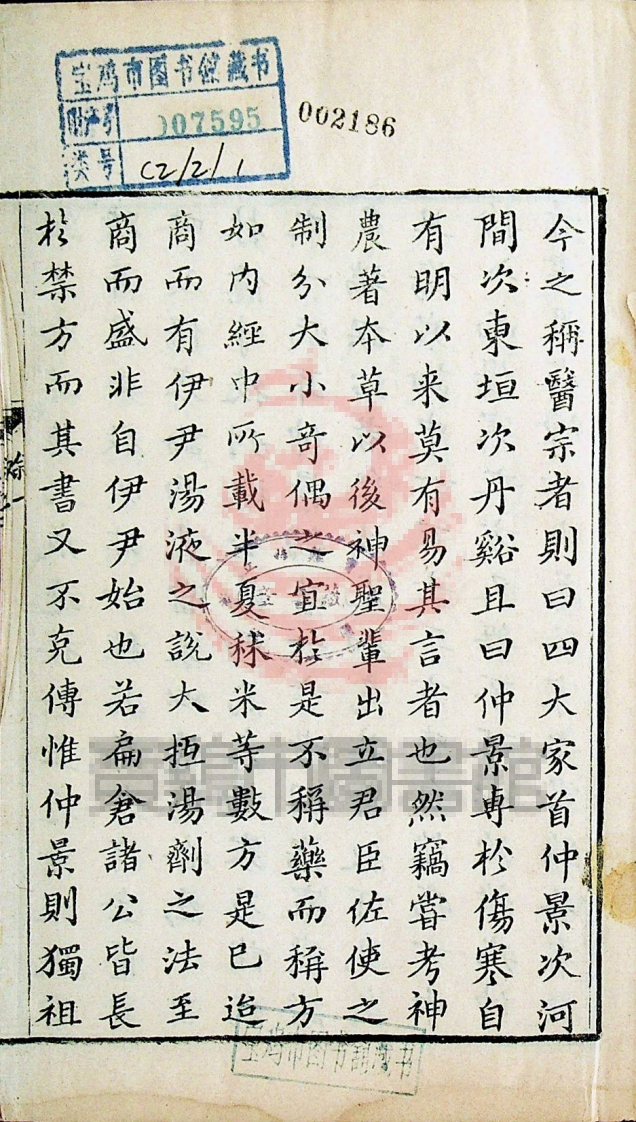 宝鸡市图书馆藏书
财产号 007595
类号 C2/2/1
002186
今之稱醫宗者則曰四大家首仲景次河
間次東垣次丹谿且曰仲景専於傷寒自
有明以来莫有易其言者也然竊嘗考神
農著本草以後神聖輩出立君臣佐使之
制分大小竒偶之宜於是不稱藥而稱方
如內經中所載半夏秫米等數方是已迨
商而有伊尹湯液之說大抵湯劑之法至
商而盛非自伊尹始也若扁倉諸公皆長
於禁方而其書又不克傳惟仲景則獨祖
寶鷄市圖書館
宝鸡市图书馆藏书